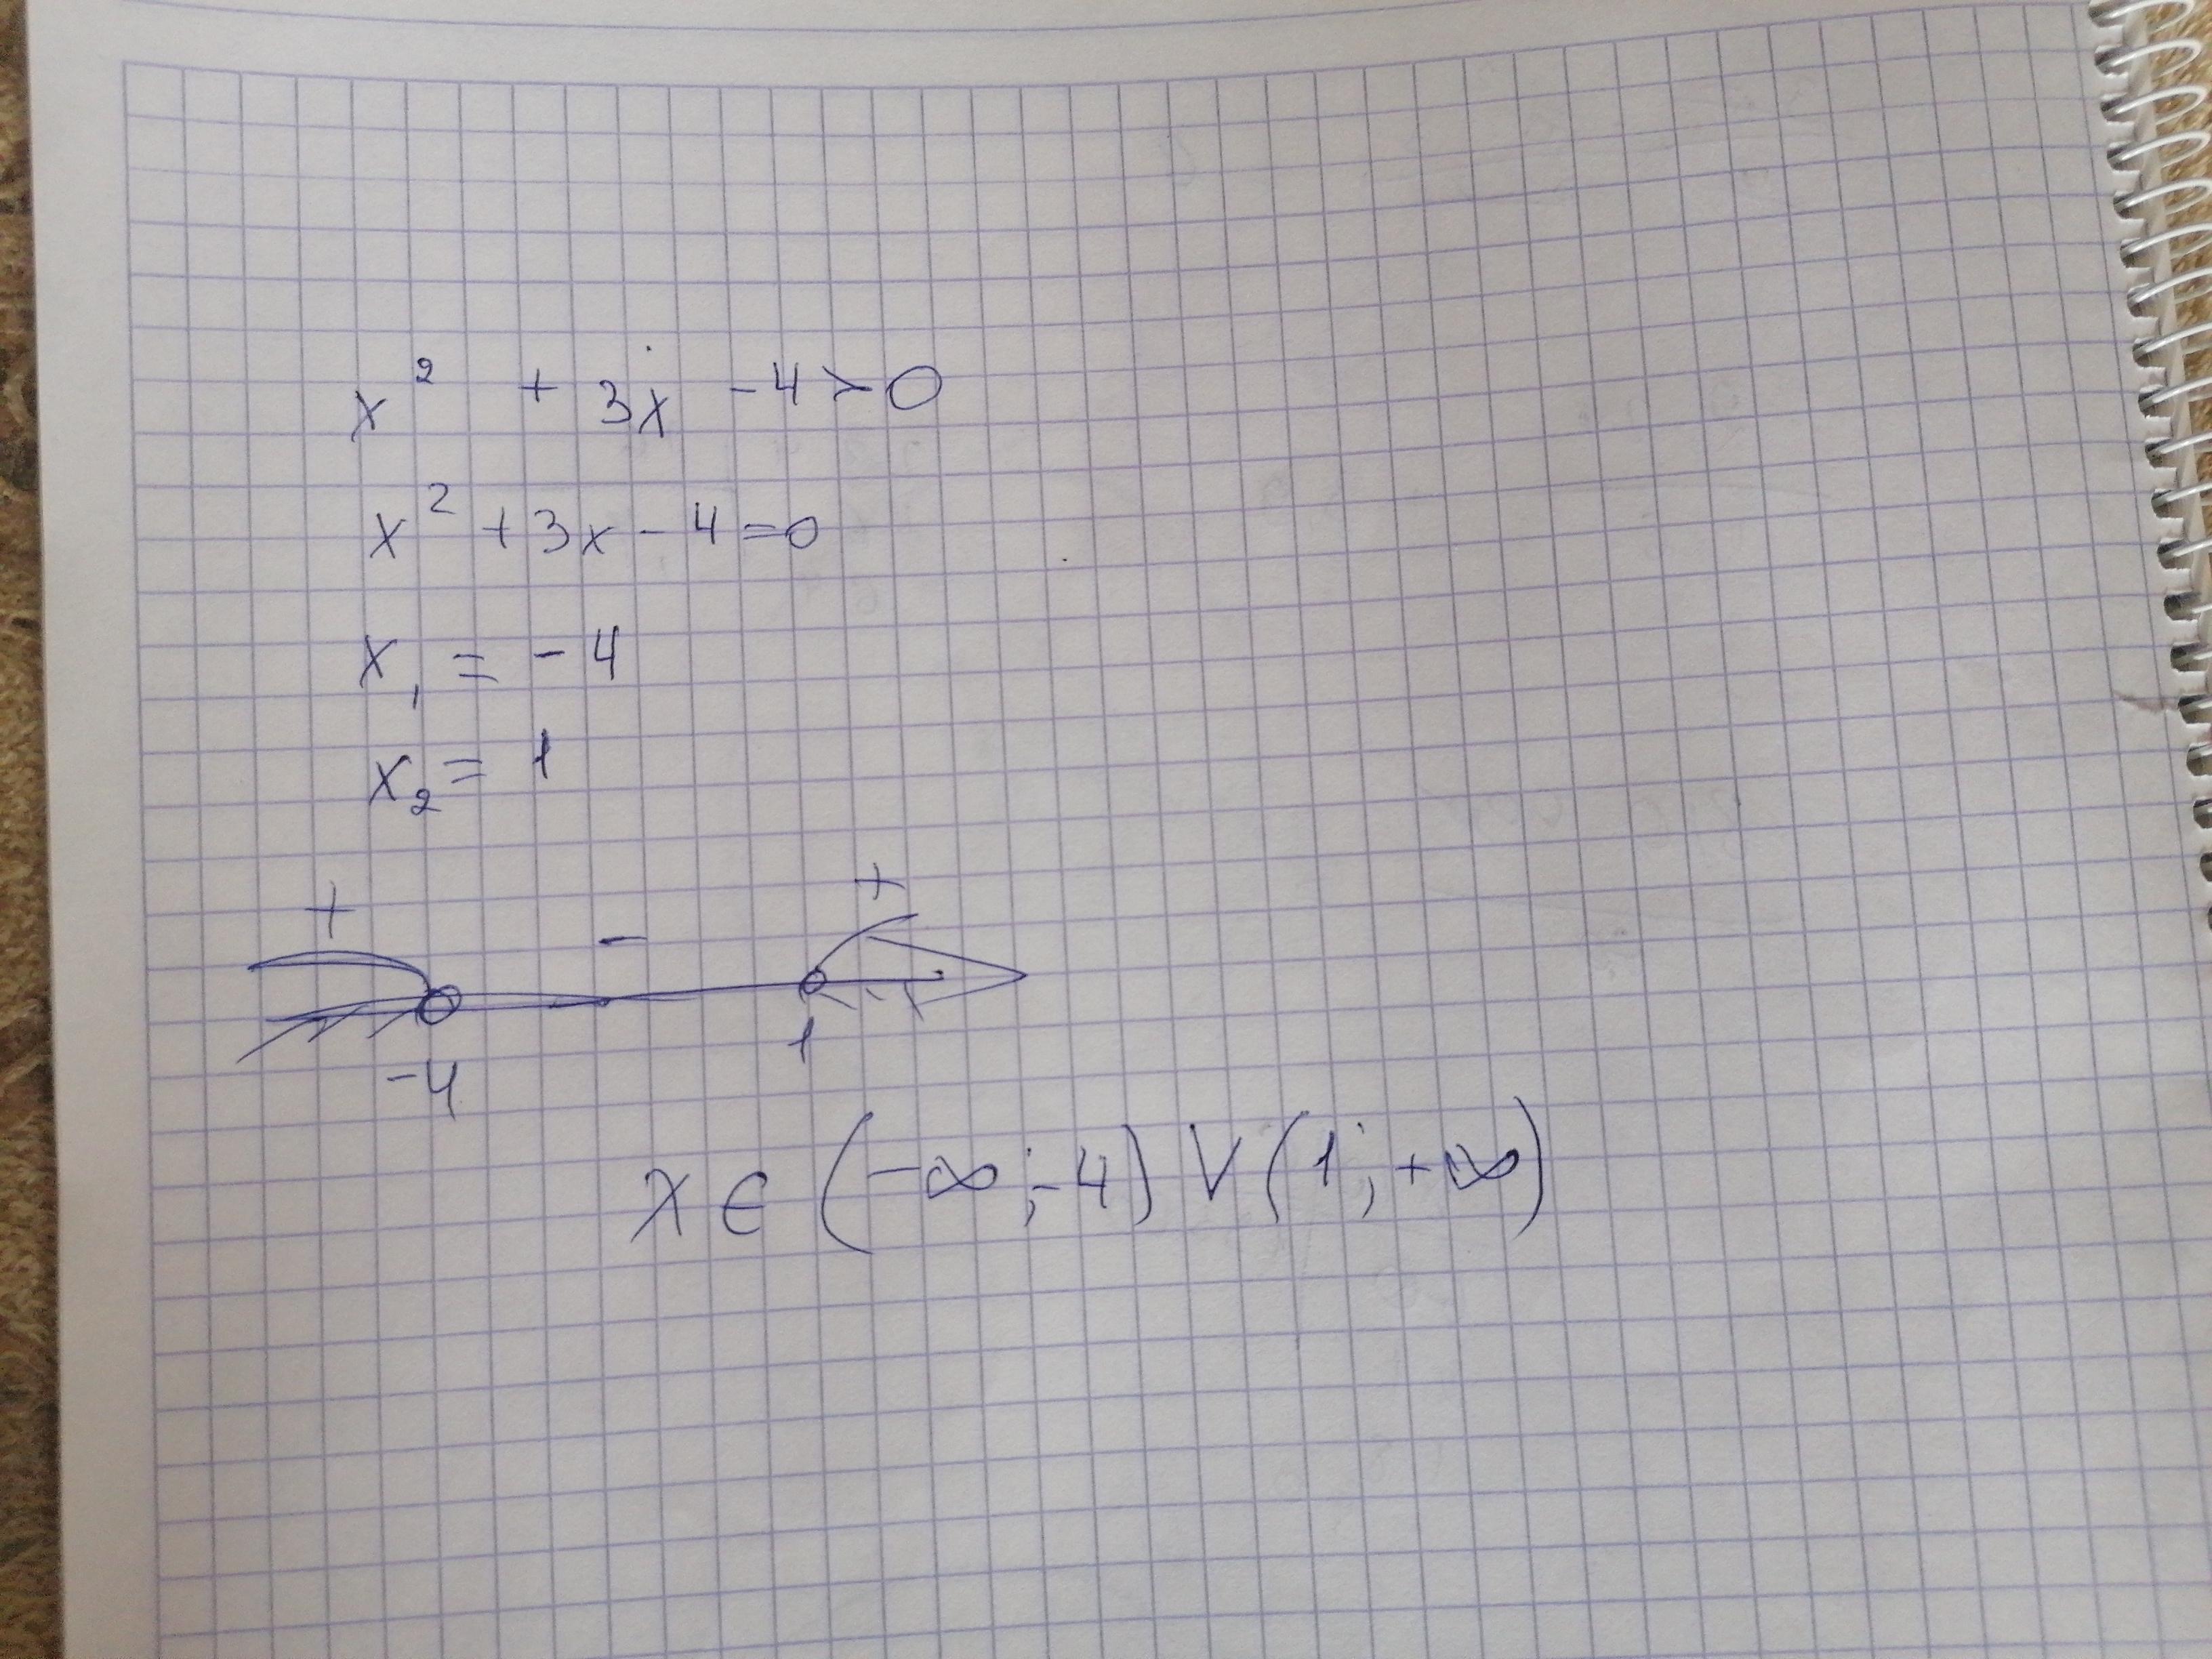 x² + 3x - 4 > 0
x² + 3x - 4 = 0
x₁ = - 4
x₂ = 1
+ - +
-4 1
x ∈ (-∞; -4) V (1; +∞)